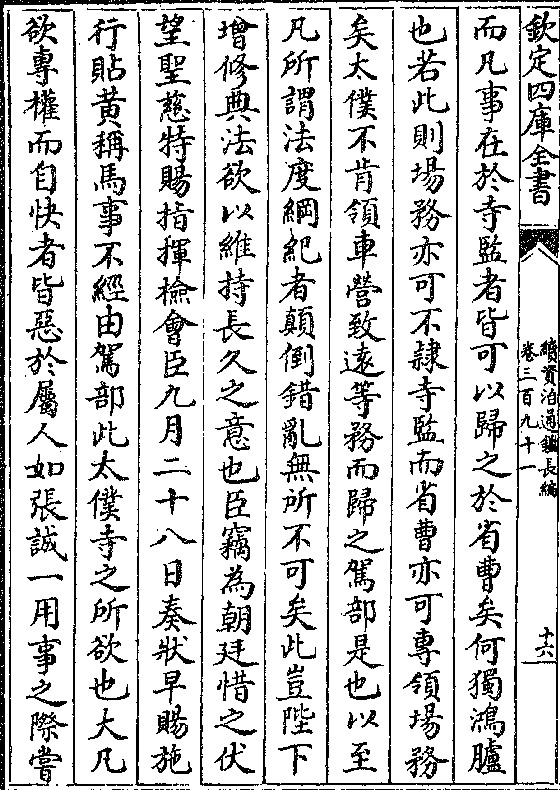 欽定四庫全書
續資治通鑑長編
卷三百九十一
十六
而凡事在於寺監者皆可以歸之於省曹矣何獨鴻臚
也若此則場務亦可不隷寺監而省曹亦可專領場務
矣太僕不肯領車營致逺等務而歸之駕部是也以至
凡所謂法度綱紀者顛倒錯亂無所不可矣此豈陛下
增修典法欲以維持長久之意也臣竊為朝廷惜之伏
望聖慈特賜指揮檢會臣九月二十八日奏狀早賜施
行貼黄稱馬事不經由駕部此太僕寺之所欲也大凡
欲專權而自快者皆惡於屬人如張誠一用事之際嘗